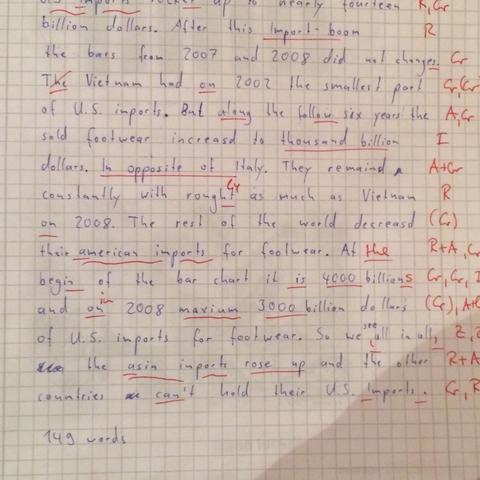 did imports rocket up to nearly fourteen R,Gr
billion dollars. After this Import-boom R
the bars from 2007 and 2008 did not changes. Gr
The Vietnam had on 2002 the smallest part Gr,(Gr)
of U.S. imports. But along the follow six years the A,Gr
sold footwear increasd to thousand billion I
dollars. In opposite of Italy. They remaind A+Gr
constantly with rought Gr as much as Vietnam R
on 2008. The rest of the world decreasd (Gr)
their american imports for footwear. At the R+A, Gr
begin of the bar chart it is 4000 billions Gr, Gr, I
and on in 2008 maxium 3000 billion dollars (Gr), A+
of U.S. imports for footwear. So we see all in all, Z,
the asin inports rose up and the other R+A
countries can't hold their U.S. Imports. Gr, R
149 words